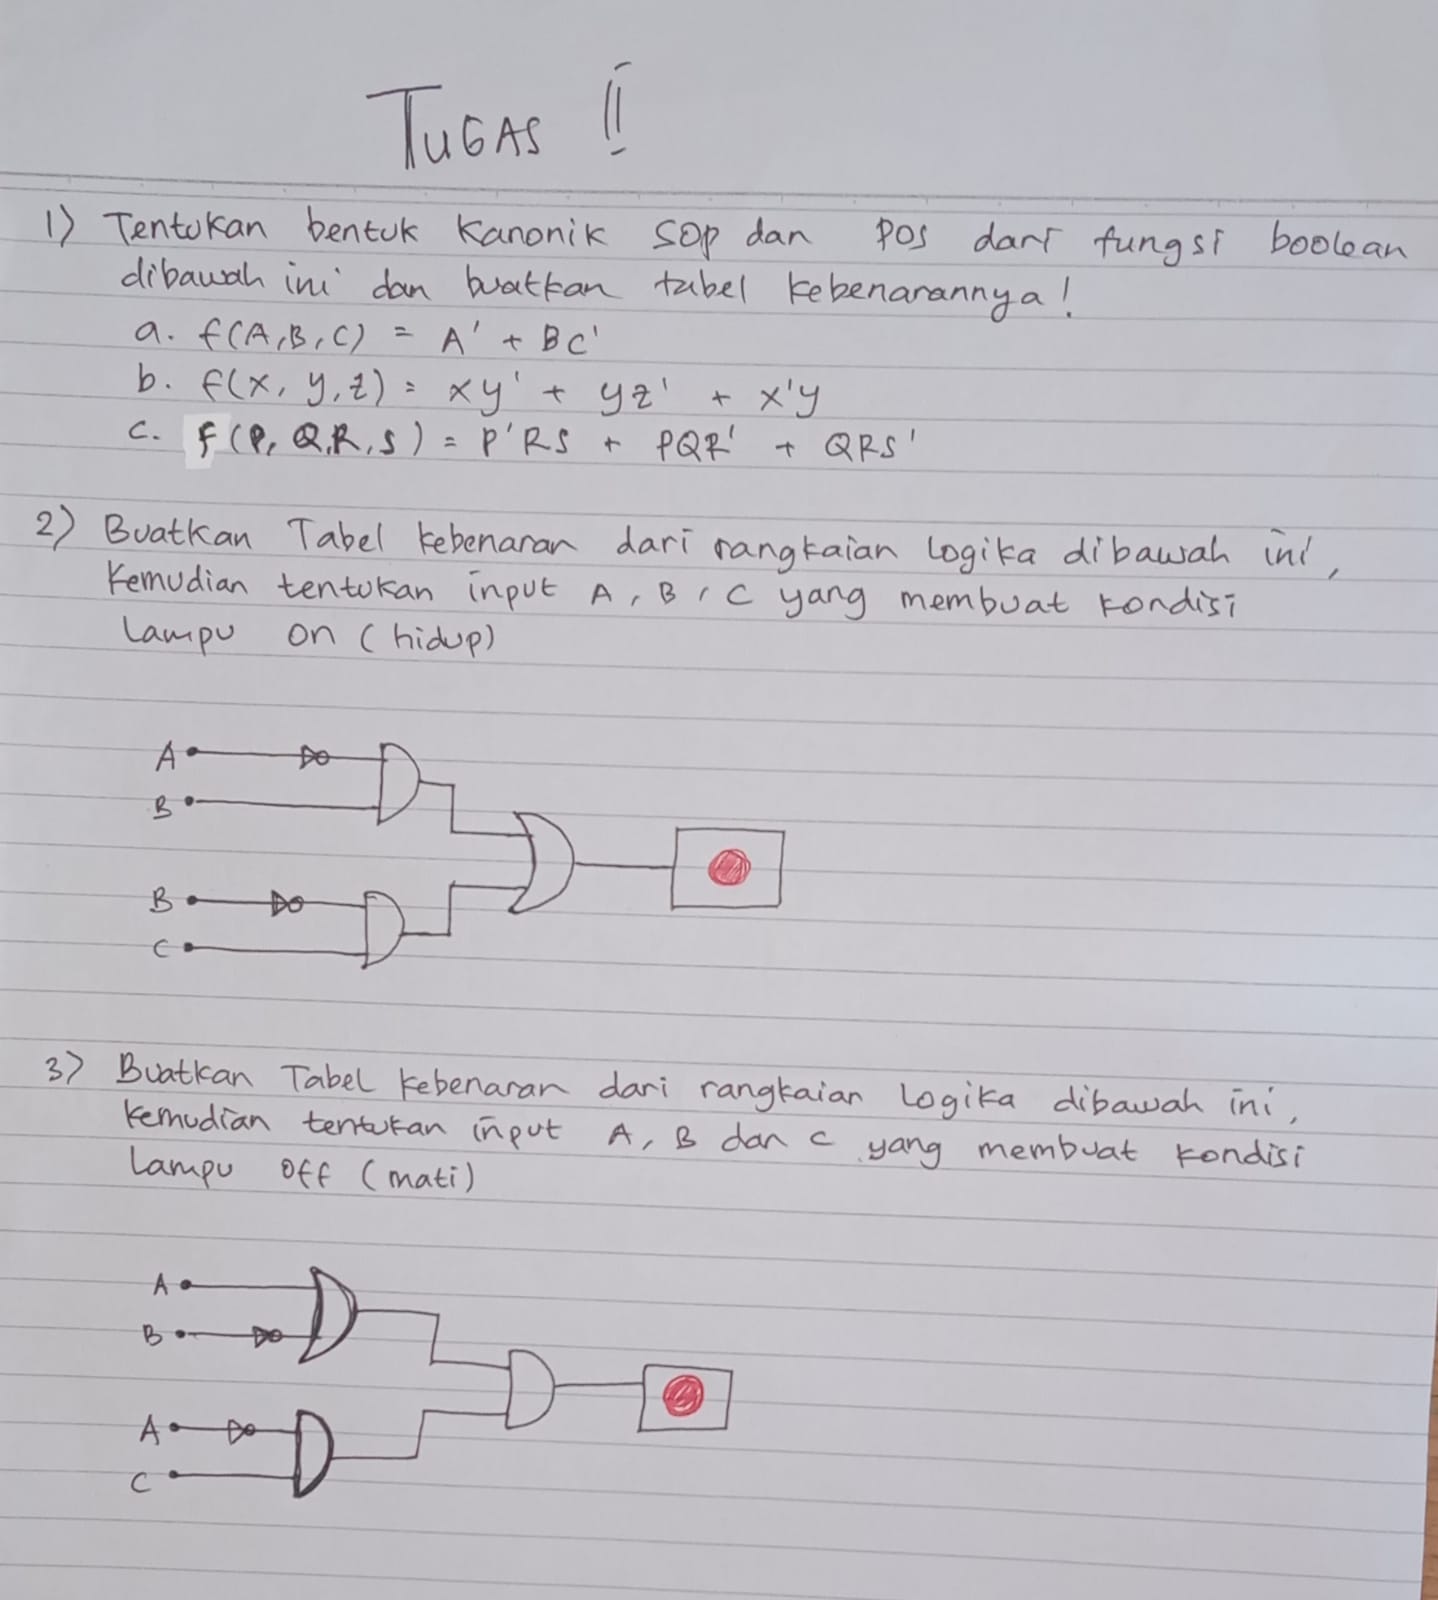 TUGAS !!
1) Tentukan bentuk kanonik SOP dan POS dari fungsi boolean
dibawah ini dan buatkan tabel kebenarannya!
a. f(A,B,C) = A' + BC'
b. f(x, y, z) = xy' + yz' + x'y
c. f(P, Q,R,S) = P'RS + PQR' + QRS'
2) Buatkan Tabel kebenaran dari rangkaian logika dibawah ini,
kemudian tentukan input A, B, C yang membuat kondisi
lampu on (hidup)
A
B
B
C
3) Buatkan Tabel kebenaran dari rangkaian logika dibawah ini,
kemudian tentukan input A, B dan C yang membuat kondisi
lampu off (mati)
A
B
A
C